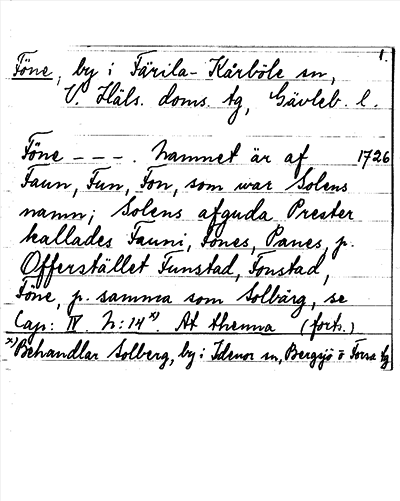 1.
Föne, by i Färila-Kårböle sn,
V. Häls. doms. tg, Gävleb. l.
Föne - - - . Namnet är af 1726
Faun, Fun, Fon, som war Solens
namn; Solens afguda Prester
kallades Fauni, Fones, Panes, p.
Offerstället Funstad, Fonstad,
Föne, p. samma som Solbärg, se
Cap: IV. N: 14 x). At thenna (forts.)
x) Behandlar Solberg, by i Idenor sn, Bergsjö o Forsa tg